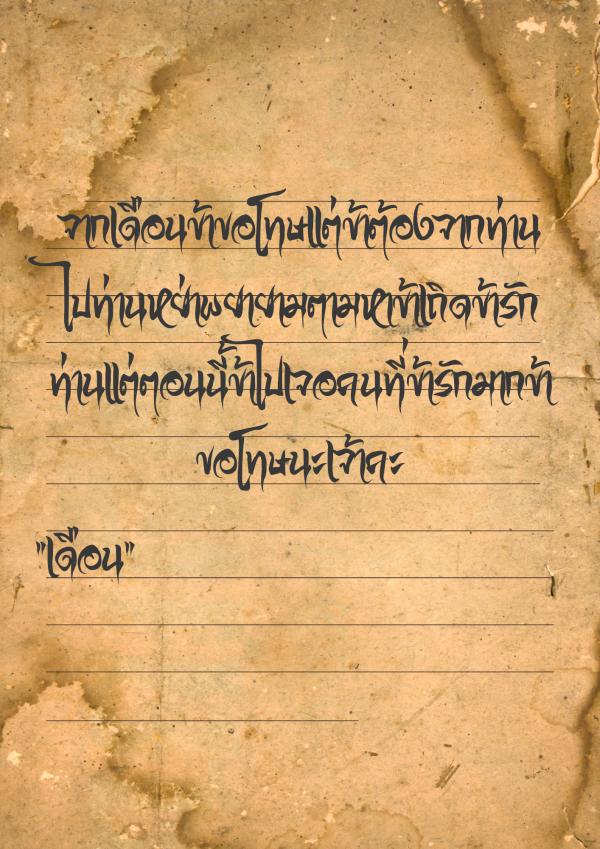 จากเดือนข้าขอโทษแต่ข้าต้องจากท่าน
ไปท่านหย่าพยายามตามหาข้าเถิดข้ารัก
ท่านแต่ตอนนี้ข้าไปเจอคนที่ข้ารักมากข้า
ขอโทษนะเจ้าคะ
"เดือน"